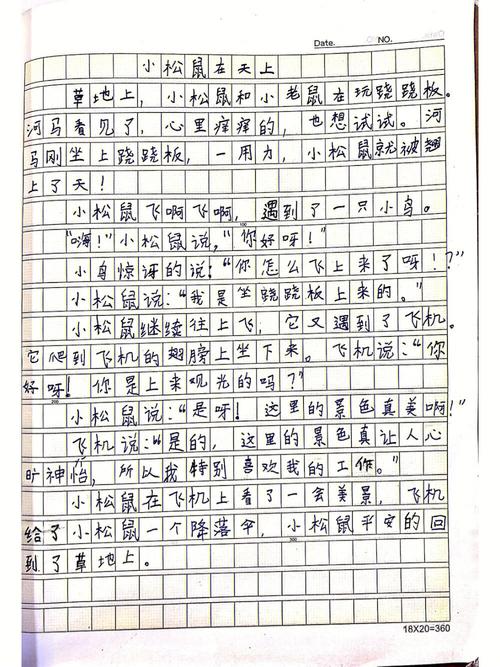 Date. NO.
小松鼠在天上
草地上，小松鼠和小老鼠在玩跷跷板。
河马看见了，心里痒痒的，也想试试。河
马刚坐上跷跷板，一用力，小松鼠就被翘
上了天！
小松鼠飞啊飞啊，遇到了一只小鸟。
“嗨！”小松鼠说，“你好呀！”
小鸟惊讶的说：“你怎么飞上来了呀！？”
小松鼠说：“我是坐跷跷板上来的。”
小松鼠继续往上飞，它又遇到了飞机。
它爬到飞机的翅膀上坐下来。飞机说：“你
好呀！你是上来观光的吗？”
小松鼠说：“是呀！这里的景色真美啊！”
飞机说：“是的，这里的景色真让人心
旷神怡，所以我特别喜欢我的工作。”
小松鼠在飞机上看了一会美景，飞机
给了小松鼠一个降落伞，小松鼠平安的回
到了草地上。
18X20=360